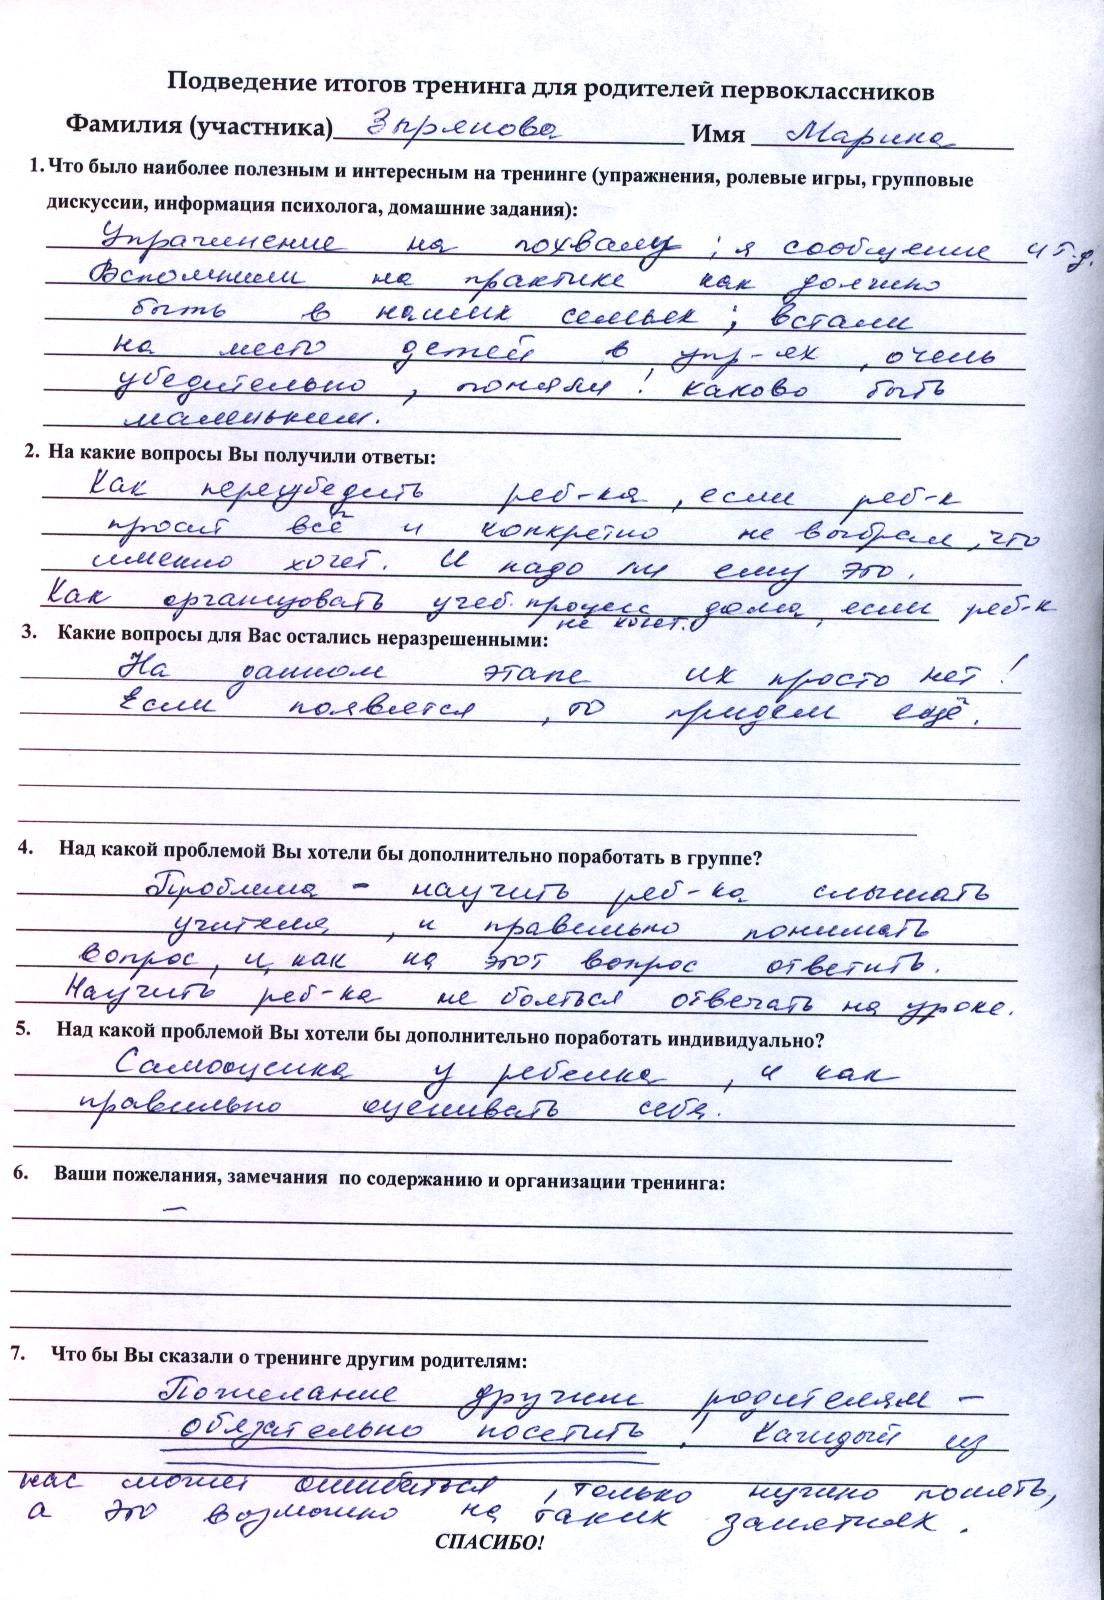 Подведение итогов тренинга для родителей первоклассников
Фамилия (участника) Зырянова Имя Марина
1. Что было наиболее полезным и интересным на тренинге (упражнения, ролевые игры, групповые
дискуссии, информация психолога, домашние задания):
Упражнение на похвалу ; я сообщение и т.д.
Вспомнили на практике как должно
быть в наших семьях ; встали
на место детей в упр-ях , очень
убедительно , поняли ! каково быть
маленьким.
2. На какие вопросы Вы получили ответы:
Как переубедить реб-ка , если реб-к
просит всё и конкретно не выбрал , что
именно хочет. И надо ли ему это.
Как организовать учеб. процесс дома, если реб-к
не хочет.
3. Какие вопросы для Вас остались неразрешенными:
На данном этапе их просто нет !
Если появятся , то придем ещё.
4. Над какой проблемой Вы хотели бы дополнительно поработать в группе?
Проблема - научить реб-ка слышать
учителя , и правильно понимать
вопрос, и, как на этот вопрос ответить.
Научить реб-ка не бояться отвечать на уроке.
5. Над какой проблемой Вы хотели бы дополнительно поработать индивидуально?
Самооценка у ребенка , и как
правильно оценивать себя.
6. Ваши пожелания, замечания по содержанию и организации тренинга:
–
7. Что бы Вы сказали о тренинге другим родителям:
Пожелание другим родителям –
обязательно посетить ! Каждый из
нас может ошибаться , только нужно понять,
а это возможно на таких занятиях .
СПАСИБО!